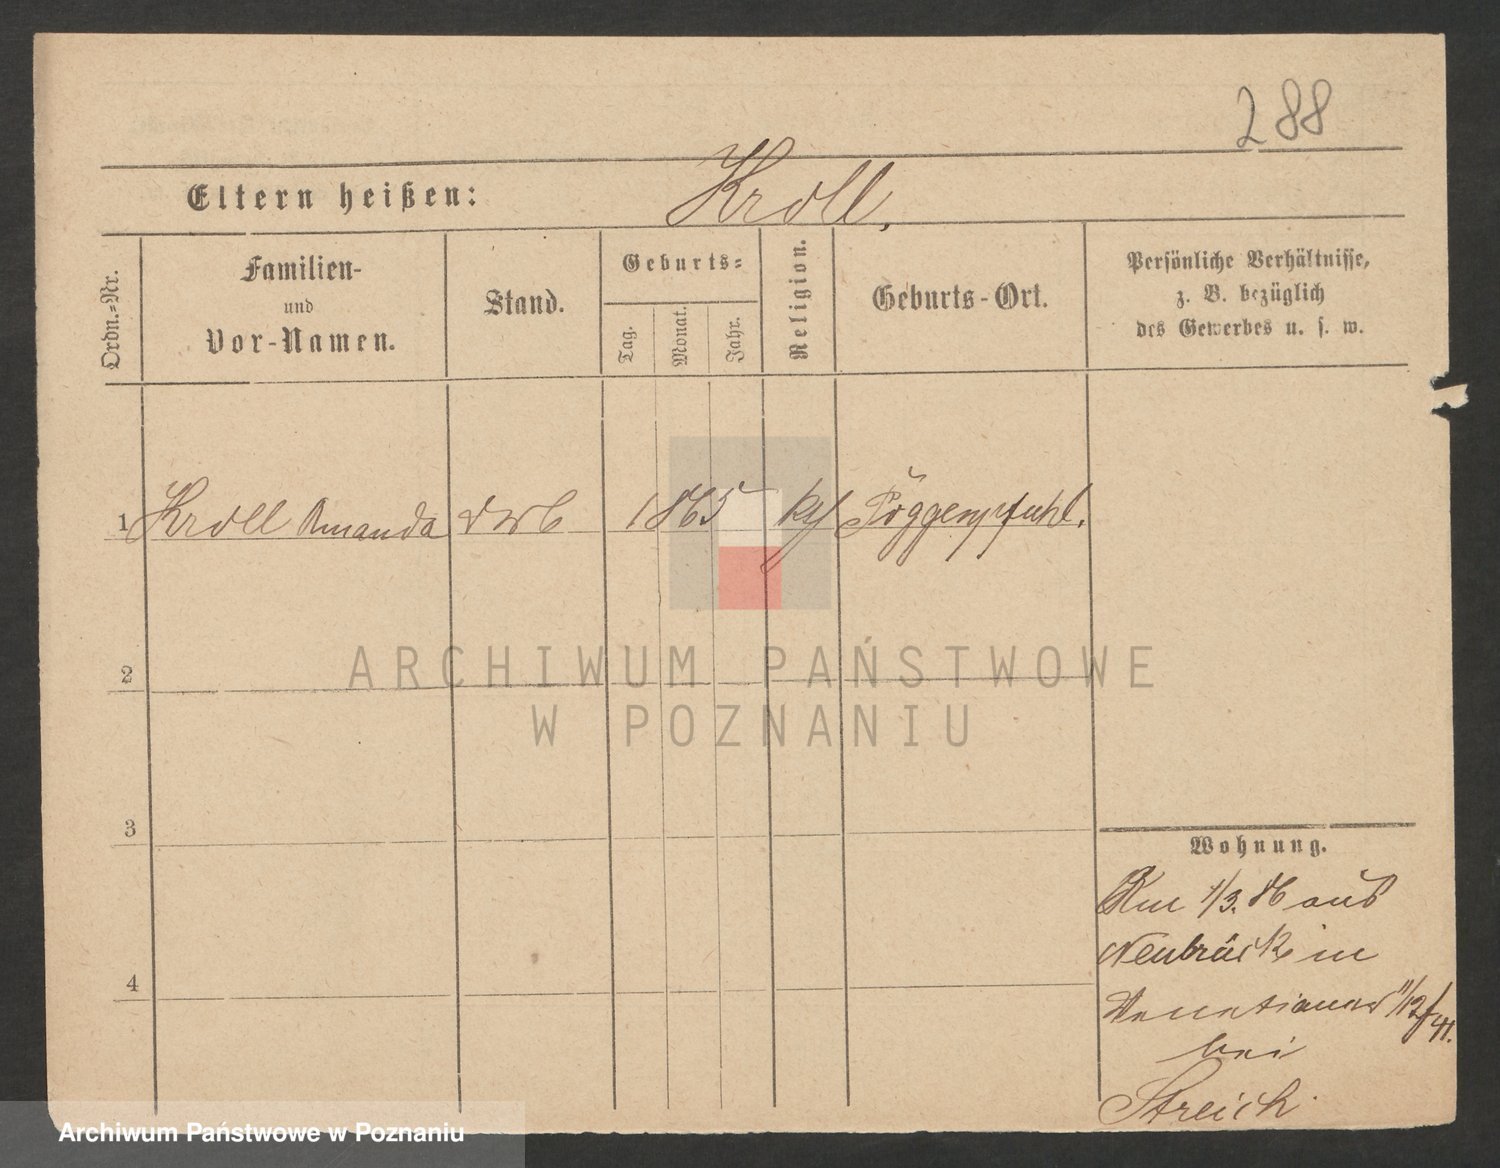 288
Eltern heißen: Kroll,
Ordn.=Nr.
Familien-
und
Vor-Namen.
Stand.
Geburts=
Tag.
Monat.
Jahr.
Religion.
Geburts-Ort.
Persönliche Verhältnisse,
z. B. bezüglich
des Gewerbes u. s. w.
1 Kroll Amanda 1865 Pöggenpfuhl.
2
ARCHIWUM PAŃSTWOWE
W POZNANIU
3
4
Wohnung.
1/3. 86 aus
Neubrück in
Venetianer
bei
Streich
Archiwum Państwowe w Poznaniu